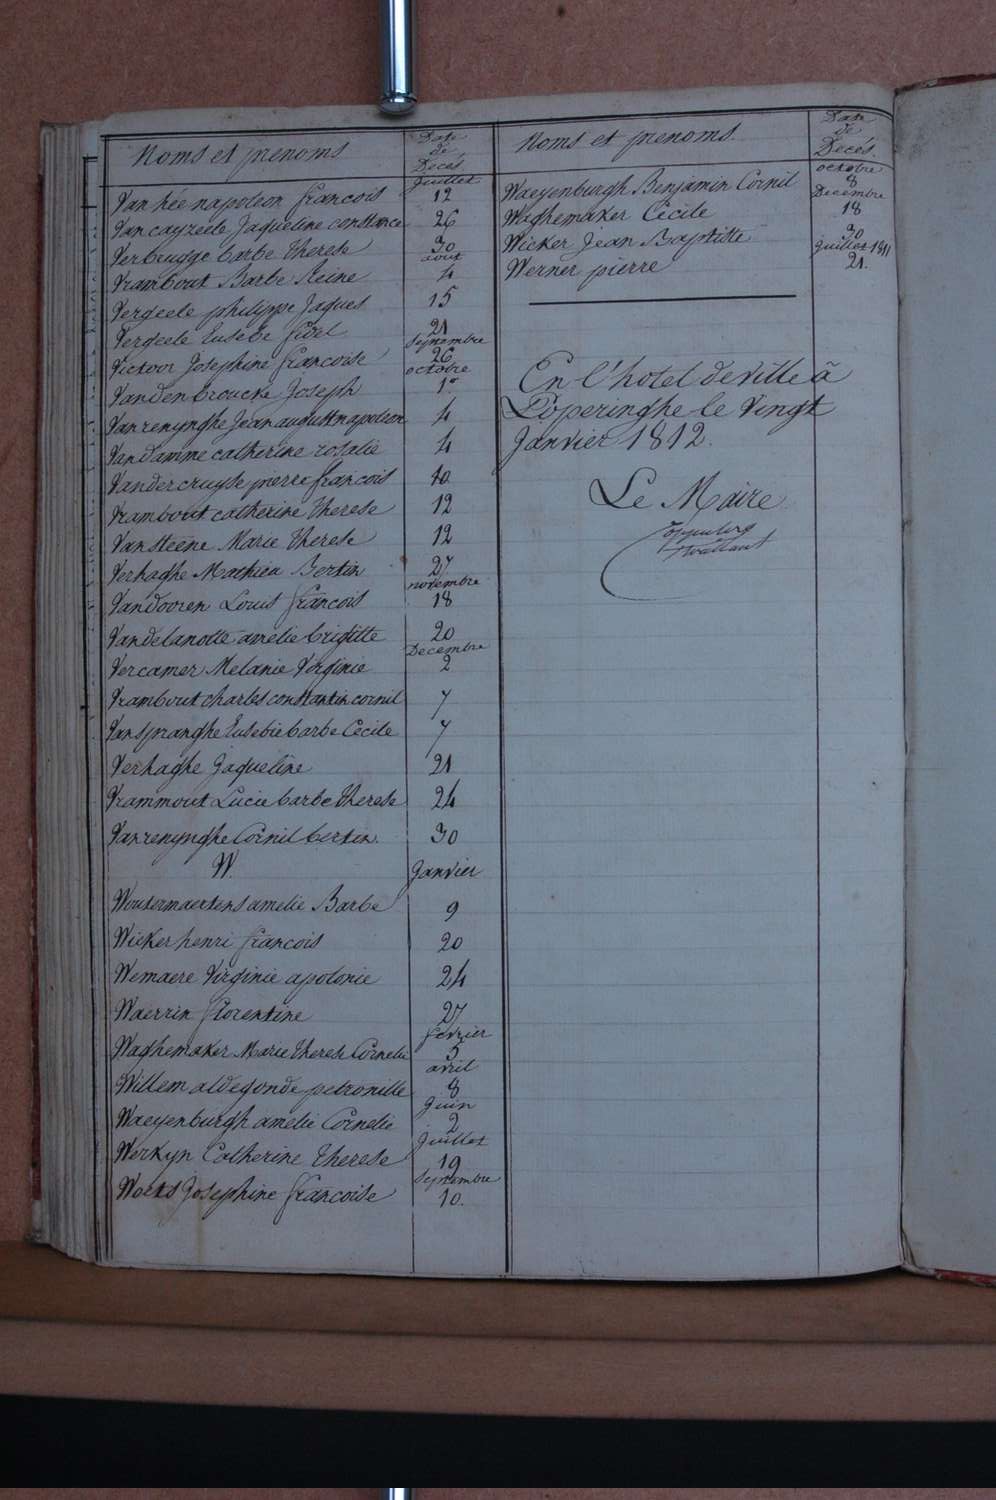 Noms et prenoms
Date
de
Decés
Juillet
Van hée napoleon francois 12
Van cayzeele Jaqueline constance 26
Verbrugge barbe therese 30
aout
Vrambout Barbe Reine 4
Vergeele philippe Jaques 15
Vergeele Eusebe fidel 21
Septembre
Victoor Josephine francoise 26
octobre
Vandenbroucke Joseph 1er
Vanrenynghe Jean august napoleon 4
Vandamme catherine rosalie 4
Vandercruyse pierre francois 10
Vrambout catherine therese 12
Vansteene Marie therese 12
Verhaghe Mathieu Bertin 27
novembre
Vandooren Louis francois 18
Vandelanotte amelie brigitte 20
Decembre
Vercamer Melanie Virginie 2
Vrambout charles constantin cornil 7
Vanspranghe Eusebie barbe Cecile 7
Verhaghe Jaqueline 21
Vrammout Lucie barbe therese 24
Vanrenynghe Cornil bertin. 30
W. Janvier
Woutermaertens amelie Barbe 9
Wicker henri francois 20
Wemaere Virginie apolonie 24
Waerrin florentine 27
fevrier
Waghemaker Marie therese Cornelie 5
avril
Willem aldegonde petronille 8
Juin
Waeyenburgh amelie Cornelie 2
Juillet
Werkyn Catherine therese 19
Septembre
Woets Josephine francoise 10.
Noms et prenoms.
Date
de
Decés.
octobre
Waeyenburgh Benjamin Cornil 8
Decembre
Waghemaker Cecile 18
Wicker Jean Baptiste 30
Juillet 1811
Werner pierre 21.
En l'hotel de ville à
Poperinghe le Vingt
Janvier 1812.
Le Maire